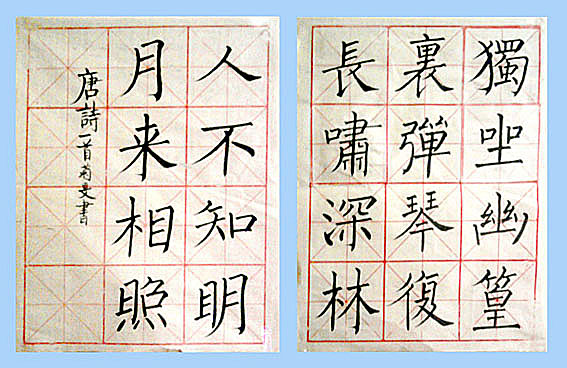 獨坐幽篁
裏彈琴復
長嘯深林
人不知明
月来相照
唐詩一首書